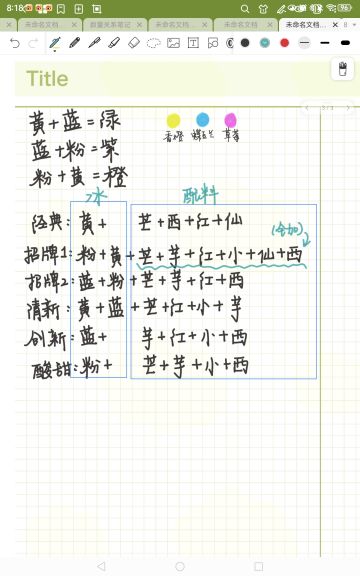 8:18
96
未命名文档...
数量关系笔记
未命名文档...
未命名文档...
未命名文档...
8
Title
3/3
黄+蓝=绿
蓝+粉=紫
粉+黄=橙
香橙 蝶豆兰 草莓
冰 配料
经典:黄+ 芒+西+红+仙
(全加)
招牌1:粉+黄+芒+芋+红+小+仙+西
招牌2:蓝+粉+芒+芋+红+西
清新:黄+蓝+芒+红+小+芋
创新:蓝+ 芋+红+小+西
酸甜:粉+ 芒+芋+小+西